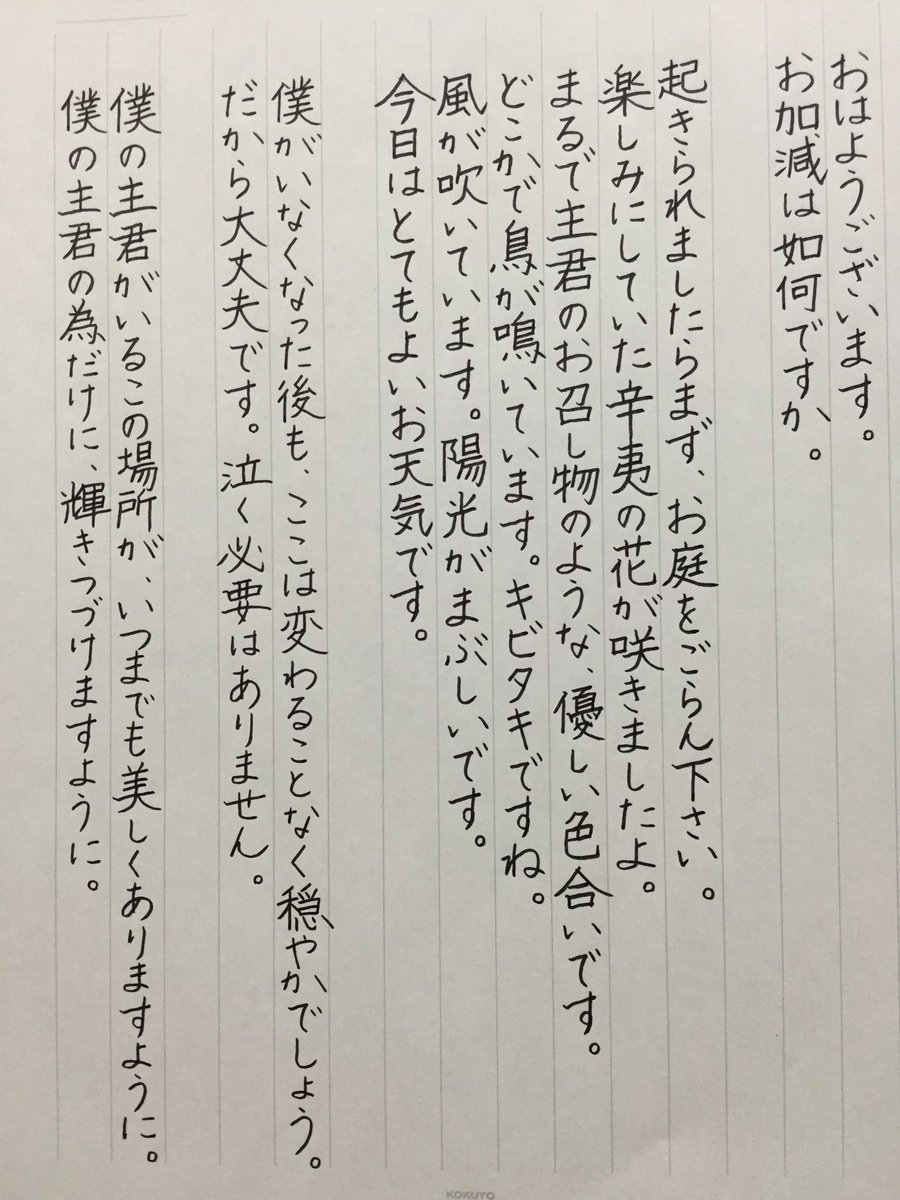 おはようございます。
お加減は如何ですか。
起きられましたらまず、お庭をごらん下さい。
楽しみにしていた辛夷の花が咲きましたよ。
まるで主君のお召し物のような、優しい色合いです。
どこかで鳥が鳴いています。キビタキですね。
風が吹いています。陽光がまぶしいです。
今日はとてもよいお天気です。
僕がいなくなった後も、ここは変わることなく穏やかでしょう。
だから大丈夫です。泣く必要はありません。
僕の主君がいるこの場所が、いつまでも美しくありますように。
僕の主君の為だけに、輝きつづけますように。
KOKUYO